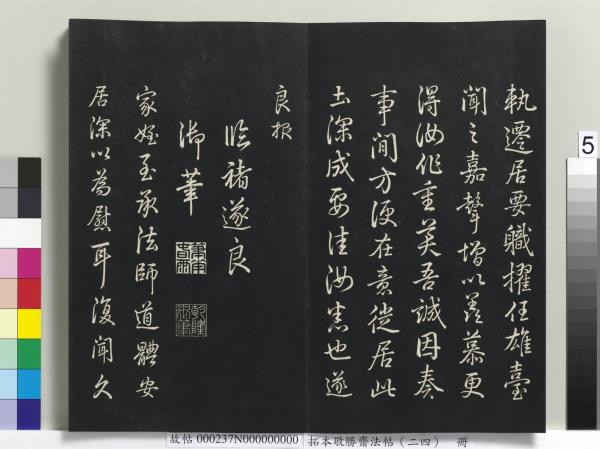 執遷居要職擢任雄臺
聞之嘉聲增以羨慕更
得汝作重英吾誠因奏
事間方便在意從居此
去深成要佳汝悉也遂
良报
臨褚遂良
御筆
乾隆
宸翰
家姪至承法師道體安
居深以為慰耳復聞久
5
故帖 000237N000000000 拓本敬勝齋法帖(二四) 冊